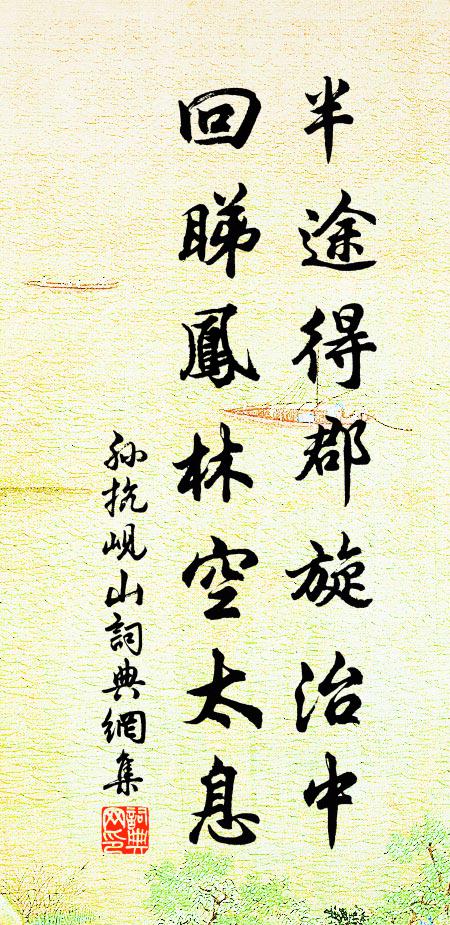 半途得郡旋治中
回睇鳳林空太息
孙抗峴山詞典網集
詞典網印